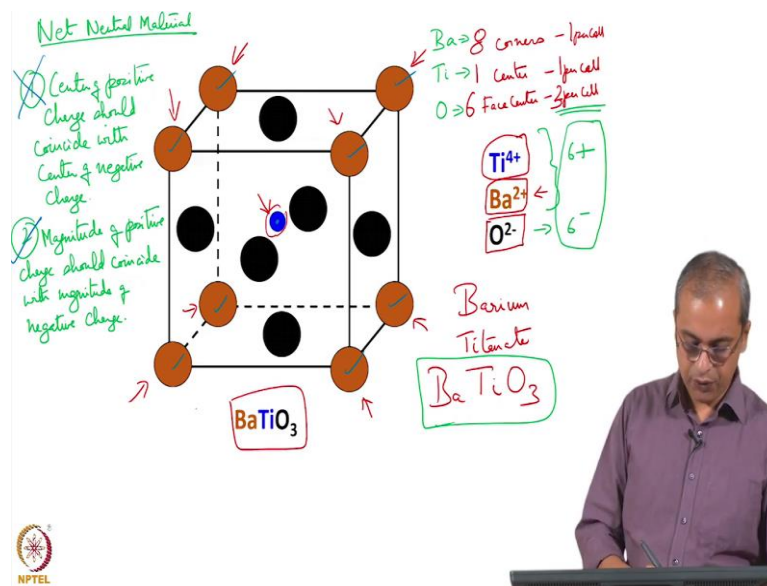 Net Neutral Material
① Center of positive
charge should
coincide with
Center of negative
Charge.
② Magnitude of positive
charge should coincide
with magnitude of
negative Charge.
Ba → 8 corners - 1 per cell
Ti → 1 center - 1 per cell
O → 6 Face center - 3 per cell
Ti4+
Ba2+
O2-
6+
6-
Barium
Titanate
BaTiO3
BaTiO3
NPTEL